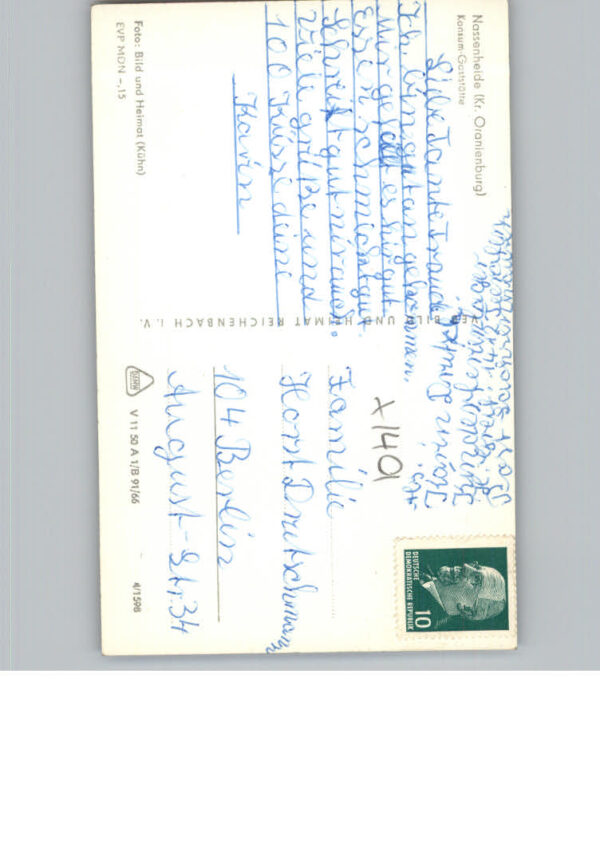 Nassenheide (Kr. Oranienburg)
Konsum-Gaststätte
Liebe Tante
Ich bin gut angekommen.
mir gefällt es hir gut
Essen schmeckt gut.
Schreibt gut
Viele grüße und
100 Küsse deine
Karin
Foto: Bild und Heimat (Kühn)
EVP MDN -,15
VEB BILD UND HEIMAT REICHENBACH i. V.
DEUTSCHE
DEMOKRATISCHE REPUBLIK
10
x1401
Familie
Horst Deutschmann
104 Berlin
August-Str 34
V 11 50 A 1/B 91/66
4/1598